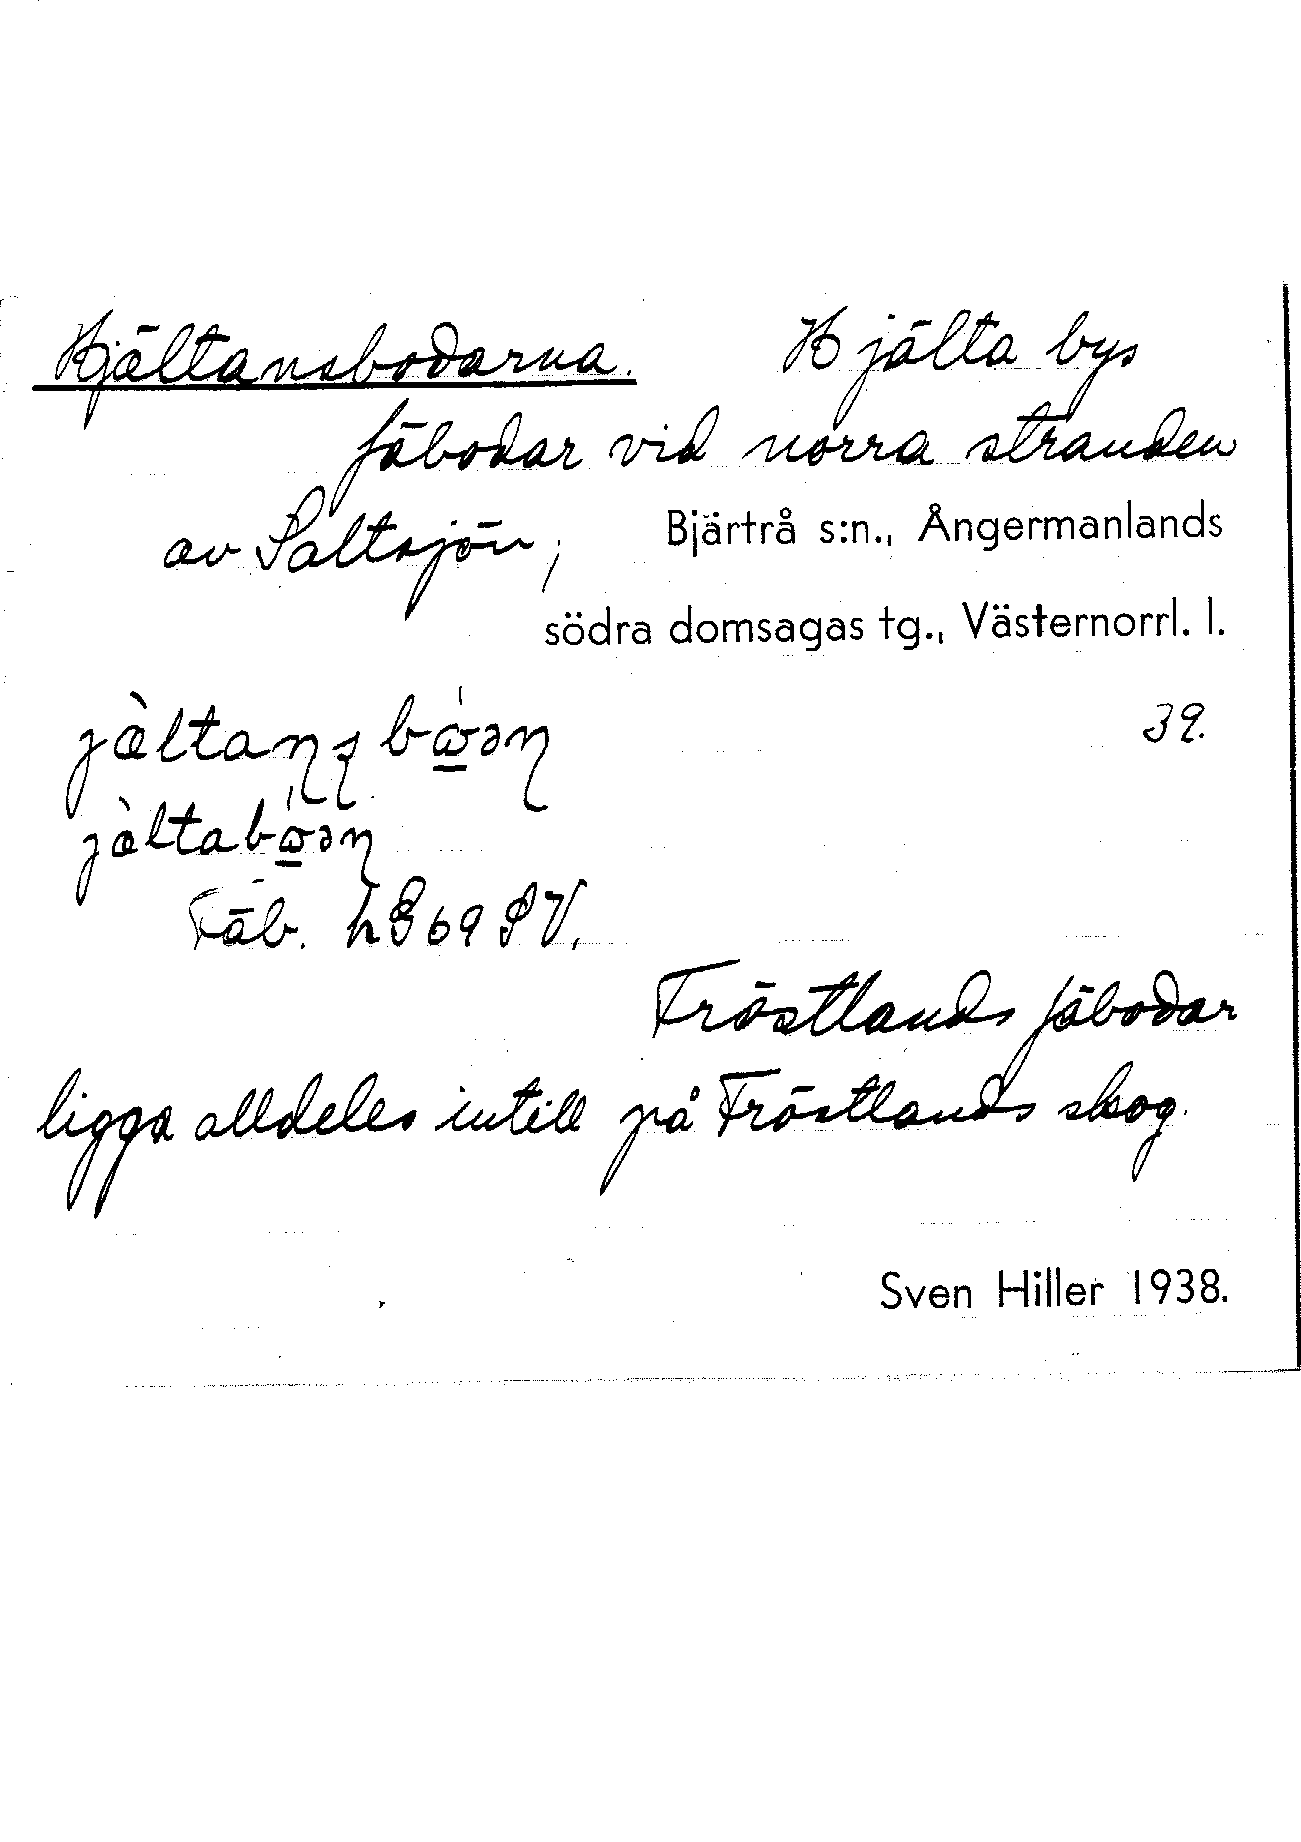 Hjältansbodarna. Hjälta bys
fäbodar vid norra stranden
av Saltsjön, Bjärtrå s:n., Ångermanlands
södra domsagas tg., Västernorrl. l.
39.
Fäb. h869SV.
Fröstlands fäbodar
ligga alldeles intill på Fröstlands skog.
Sven Hiller 1938.